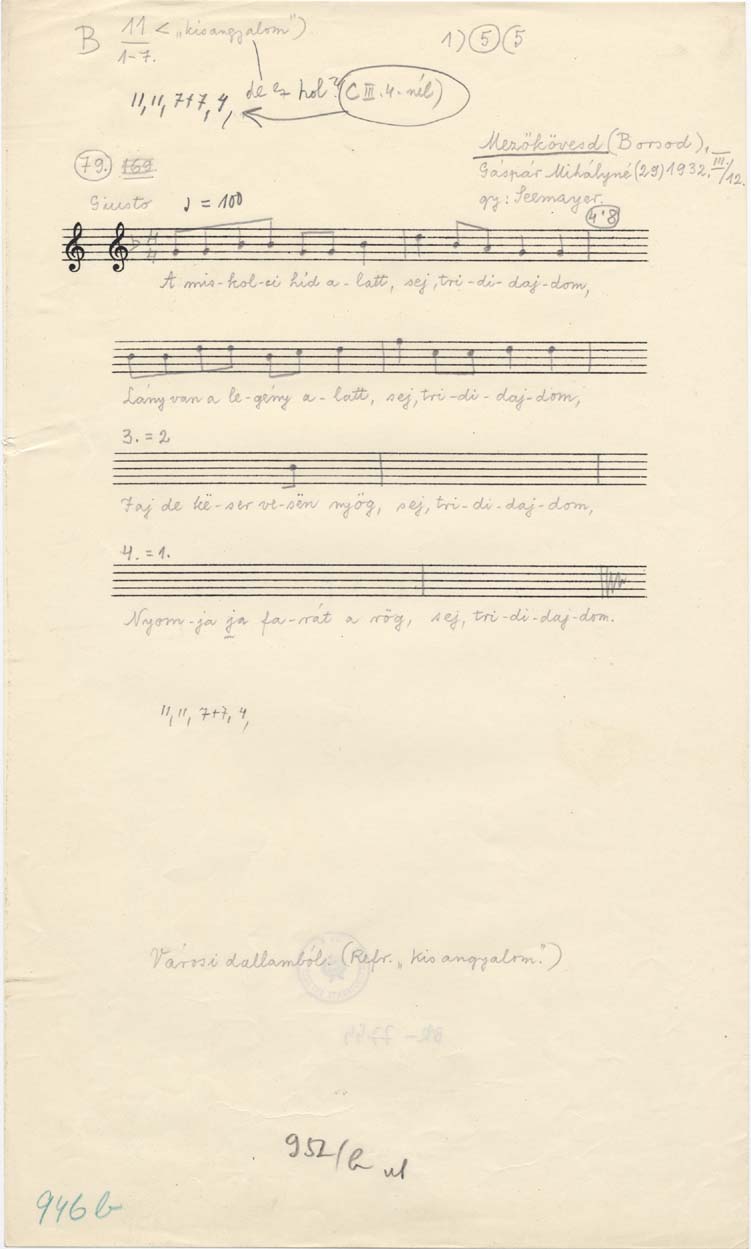 B 11/1-7. < „kisangyalom")
1) 5 (5
de ez hol? (C III. 4. nél)
11, 11, 7+7, 4,
Mezőkövesd (Borsod),
79. 169
Gáspár Mihályné (29) 1932. III/12.
Giusto ♩ = 100
gy: Seemayer.
4'8
4 4
A mis-kol-ci híd a-latt, sej, tri-di-daj-dom,
Lány van a le-gény a-latt, sej, tri-di-daj-dom,
3. = 2
Jaj de kë-ser ve-sën nyög, sej, tri-di-daj-dom,
4. = 1.
Nyom-ja ja fa-rát a rög, sej, tri-di-daj-dom.
11, 11, 7+7, 4,
Városi dallamból. (Refr. „kis angyalom.")
952/b ul
946 b